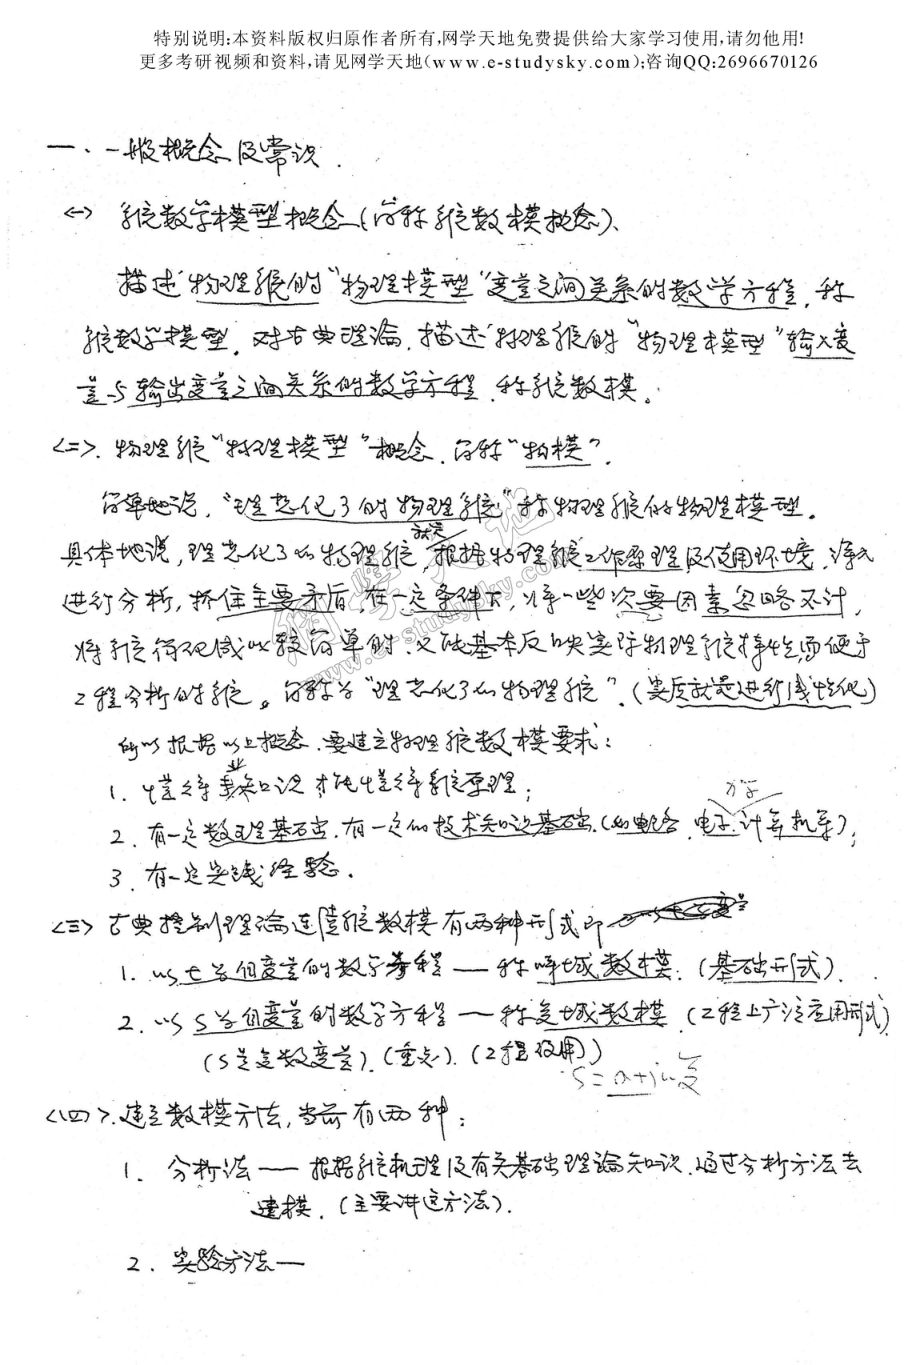 特别说明:本资料版权归原作者所有,网学天地免费提供给大家学习使用,请勿他用!
更多考研视频和资料,请见网学天地(www.e-studysky.com);咨询QQ:2696670126
一、一般概念及常识.
<一> 系统数学模型概念(简称系统数模概念)、
描述物理系统的"物理模型"变量之间关系的数学方程,称
系统数学模型. 对古典理论,描述物理系统的"物理模型"输入变
量与输出变量之间关系的数学方程,称系统数模。
<二>. 物理系统"物理模型"概念.简称"物模".
简单地说,"理想化了的物理系统"称物理系统的物理模型.
就是
具体地说,理想化了的物理系统,根据物理系统工作原理及使用环境,深入
进行分析,抓住主要矛盾,在一定条件下,将一些次要因素忽略不计,
将系统简化成比较简单的.又能基本反映实际物理系统特性而便于
工程分析的系统。简称为"理想化了的物理系统".(实质就是进行线性化)
所以根据以上概念.要建立物理系统数模要求:
业
1. 懂得专知识才能懂得系统原理;
力学
2. 有一定数理基础.有一定的技术知识基础.(如电路.电子.计算机等);
3. 有一定实践经验.
<三> 古典控制理论连续系统数模有两种形式即
1. 以t为自变量的数学方程——称时域数模.(基础形式).
2. 以S为自变量的数学方程——称复域数模.(工程上广泛应用形式)
(S是复数变量).(重点).(工程使用)
<四>.建立数模方法,当前有两种:
1. 分析法——根据系统机理及有关基础理论知识.通过分析方法去
建模.(主要讲这方法).
2. 实验方法——
网学天地
www.e-studysky.com